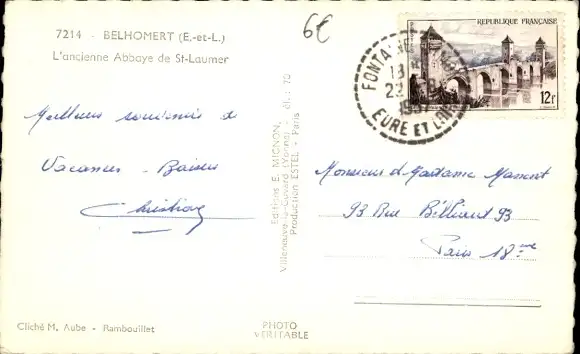 7214 - BELHOMERT (E.-et-L.)
L'ancienne Abbaye de St-Laumer
6€
REPUBLIQUE FRANÇAISE
12F
FONTAINE
22
EURE ET LOIR
Meilleurs souvenirs de
Vacances - Baisers
Christian
Editions E. MIGNON,
Villeneuve-la-Guyard (Yonne) - tél. : 70
Production ESTEL - Paris
Monsieur et Madame
93 Rue 93
Paris 18ème
Cliché M. Aube - Rambouillet
PHOTO
VERITABLE